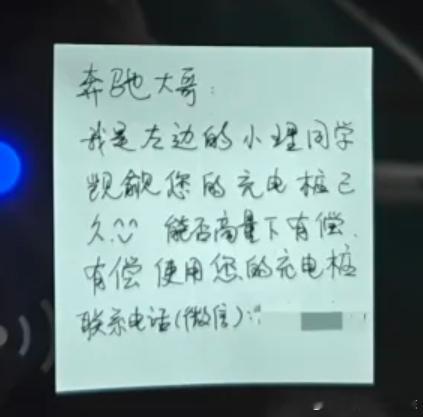 奔驰大哥:
我是左边的小理同学
觊觎您的充电桩已
久 能否商量下有偿、
有偿使用您的充电桩
联系电话(微信):